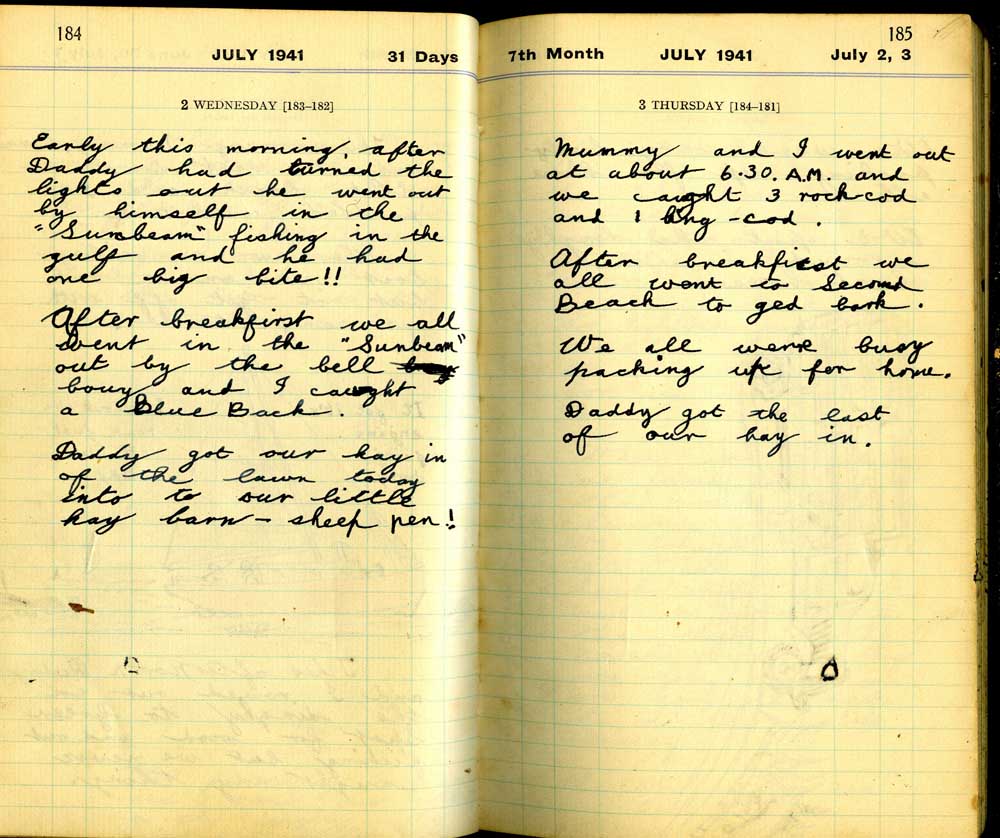 184
JULY 1941 31 Days
2 WEDNESDAY [183–182]
Early this morning, after
Daddy had turned the
lights out he went out
by himself in the
"Sunbeam" fishing in the
gulf and he had
one big bite!!
After breakfirst we all
went in the "Sunbeam"
out by the bell
bouy and I caught
a Blue Back.
Daddy got our hay in
of the lawn today
into to our little
hay barn – sheep pen!
185
7th Month JULY 1941 July 2, 3
3 THURSDAY [184–181]
Mummy and I went out
at about 6.30. A.M. and
we caught 3 rock-cod
and 1 ling-cod.
After breakfirst we
all went to Second
Beach to ged bark.
We all were busy
packing up for home.
Daddy got the last
of our hay in.